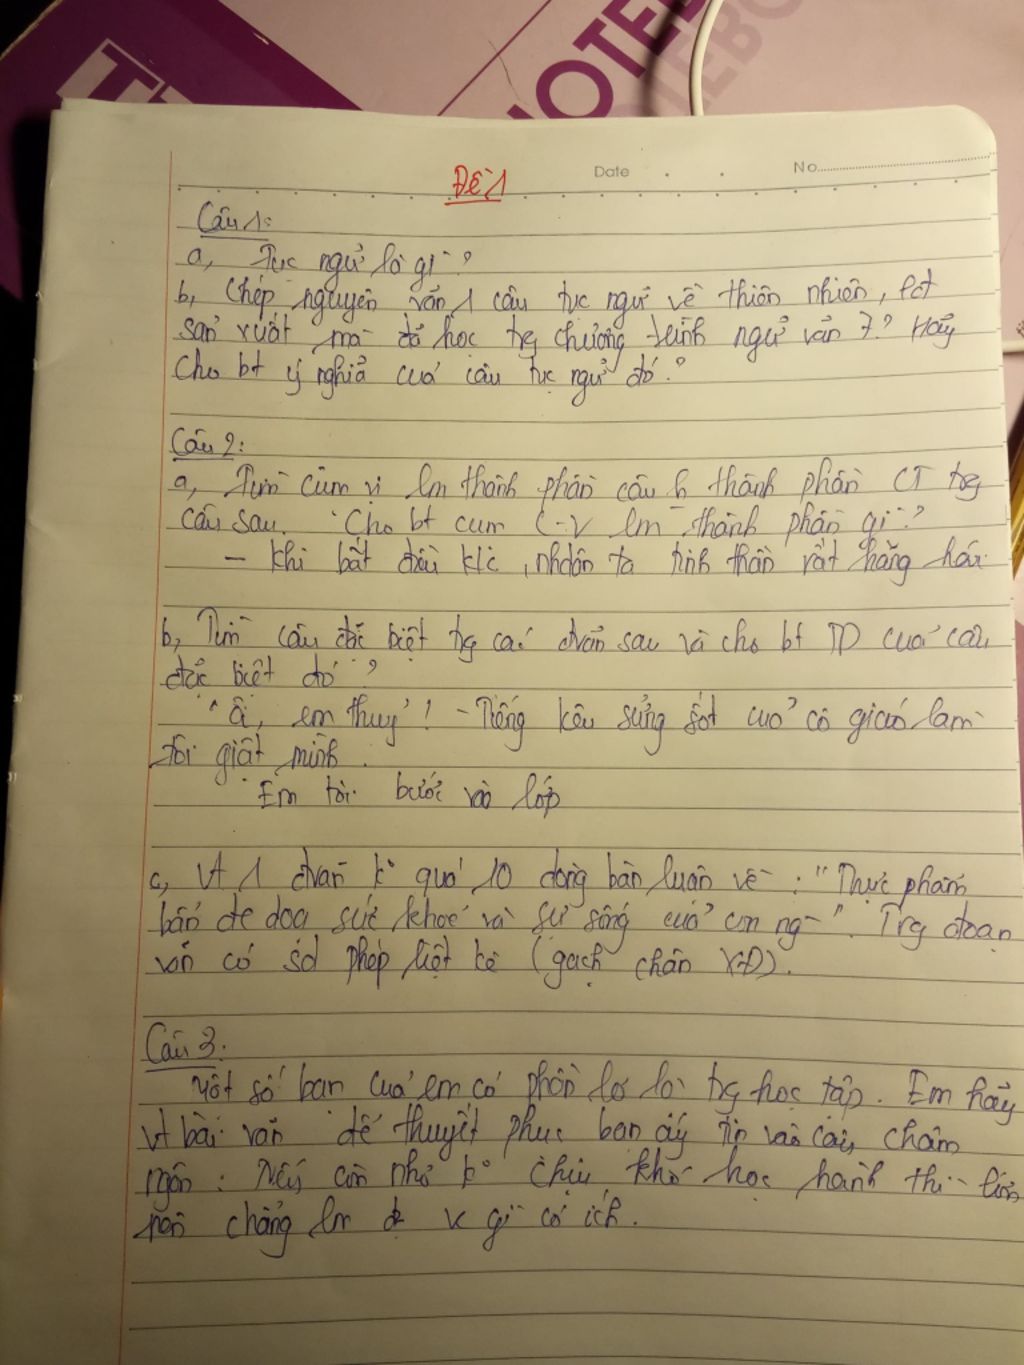 NOTEB
Date
No
Đề 1
Câu 1:
a, Tục ngữ là gì?
b, Chép nguyên văn 1 câu tục ngữ về thiên nhiên, lđ
sản xuất mà đã học trg chương trình ngữ văn 7? Hãy
cho bt ý nghĩa của câu tục ngữ đó?
Câu 2:
a, Tìm cụm vị lm thành phần câu h thành phần CT trg
câu sau. Cho bt cụm C-V lm thành phần gì?
- Khi bắt đầu k/c, nhdân ta tinh thần rất hăng hái
b, Tìm câu đặc biệt trg các đvăn sau và cho bt TD của câu
đặc biệt đó?
"Ôi, em thuỷ! - Tiếng kêu sửng sốt của cô giáo làm
tôi giật mình.
Em tôi bước vào lớp
c, Vt 1 đvăn k quá 10 dòng bàn luận về: "Thực phẩm
bẩn đe doạ sức khoẻ và sự sống của con ng". Trg đoạn
văn có sd phép liệt kê (gạch chân XĐ).
Câu 3:
Một số bạn của em có phần lơ là trg học tập. Em hãy
vt bài văn để thuyết phục bạn ấy tin vào câu châm
ngôn: Nếu còn nhỏ k chịu khó học hành thì lớn
nên chẳng lm đc v gì có ích.